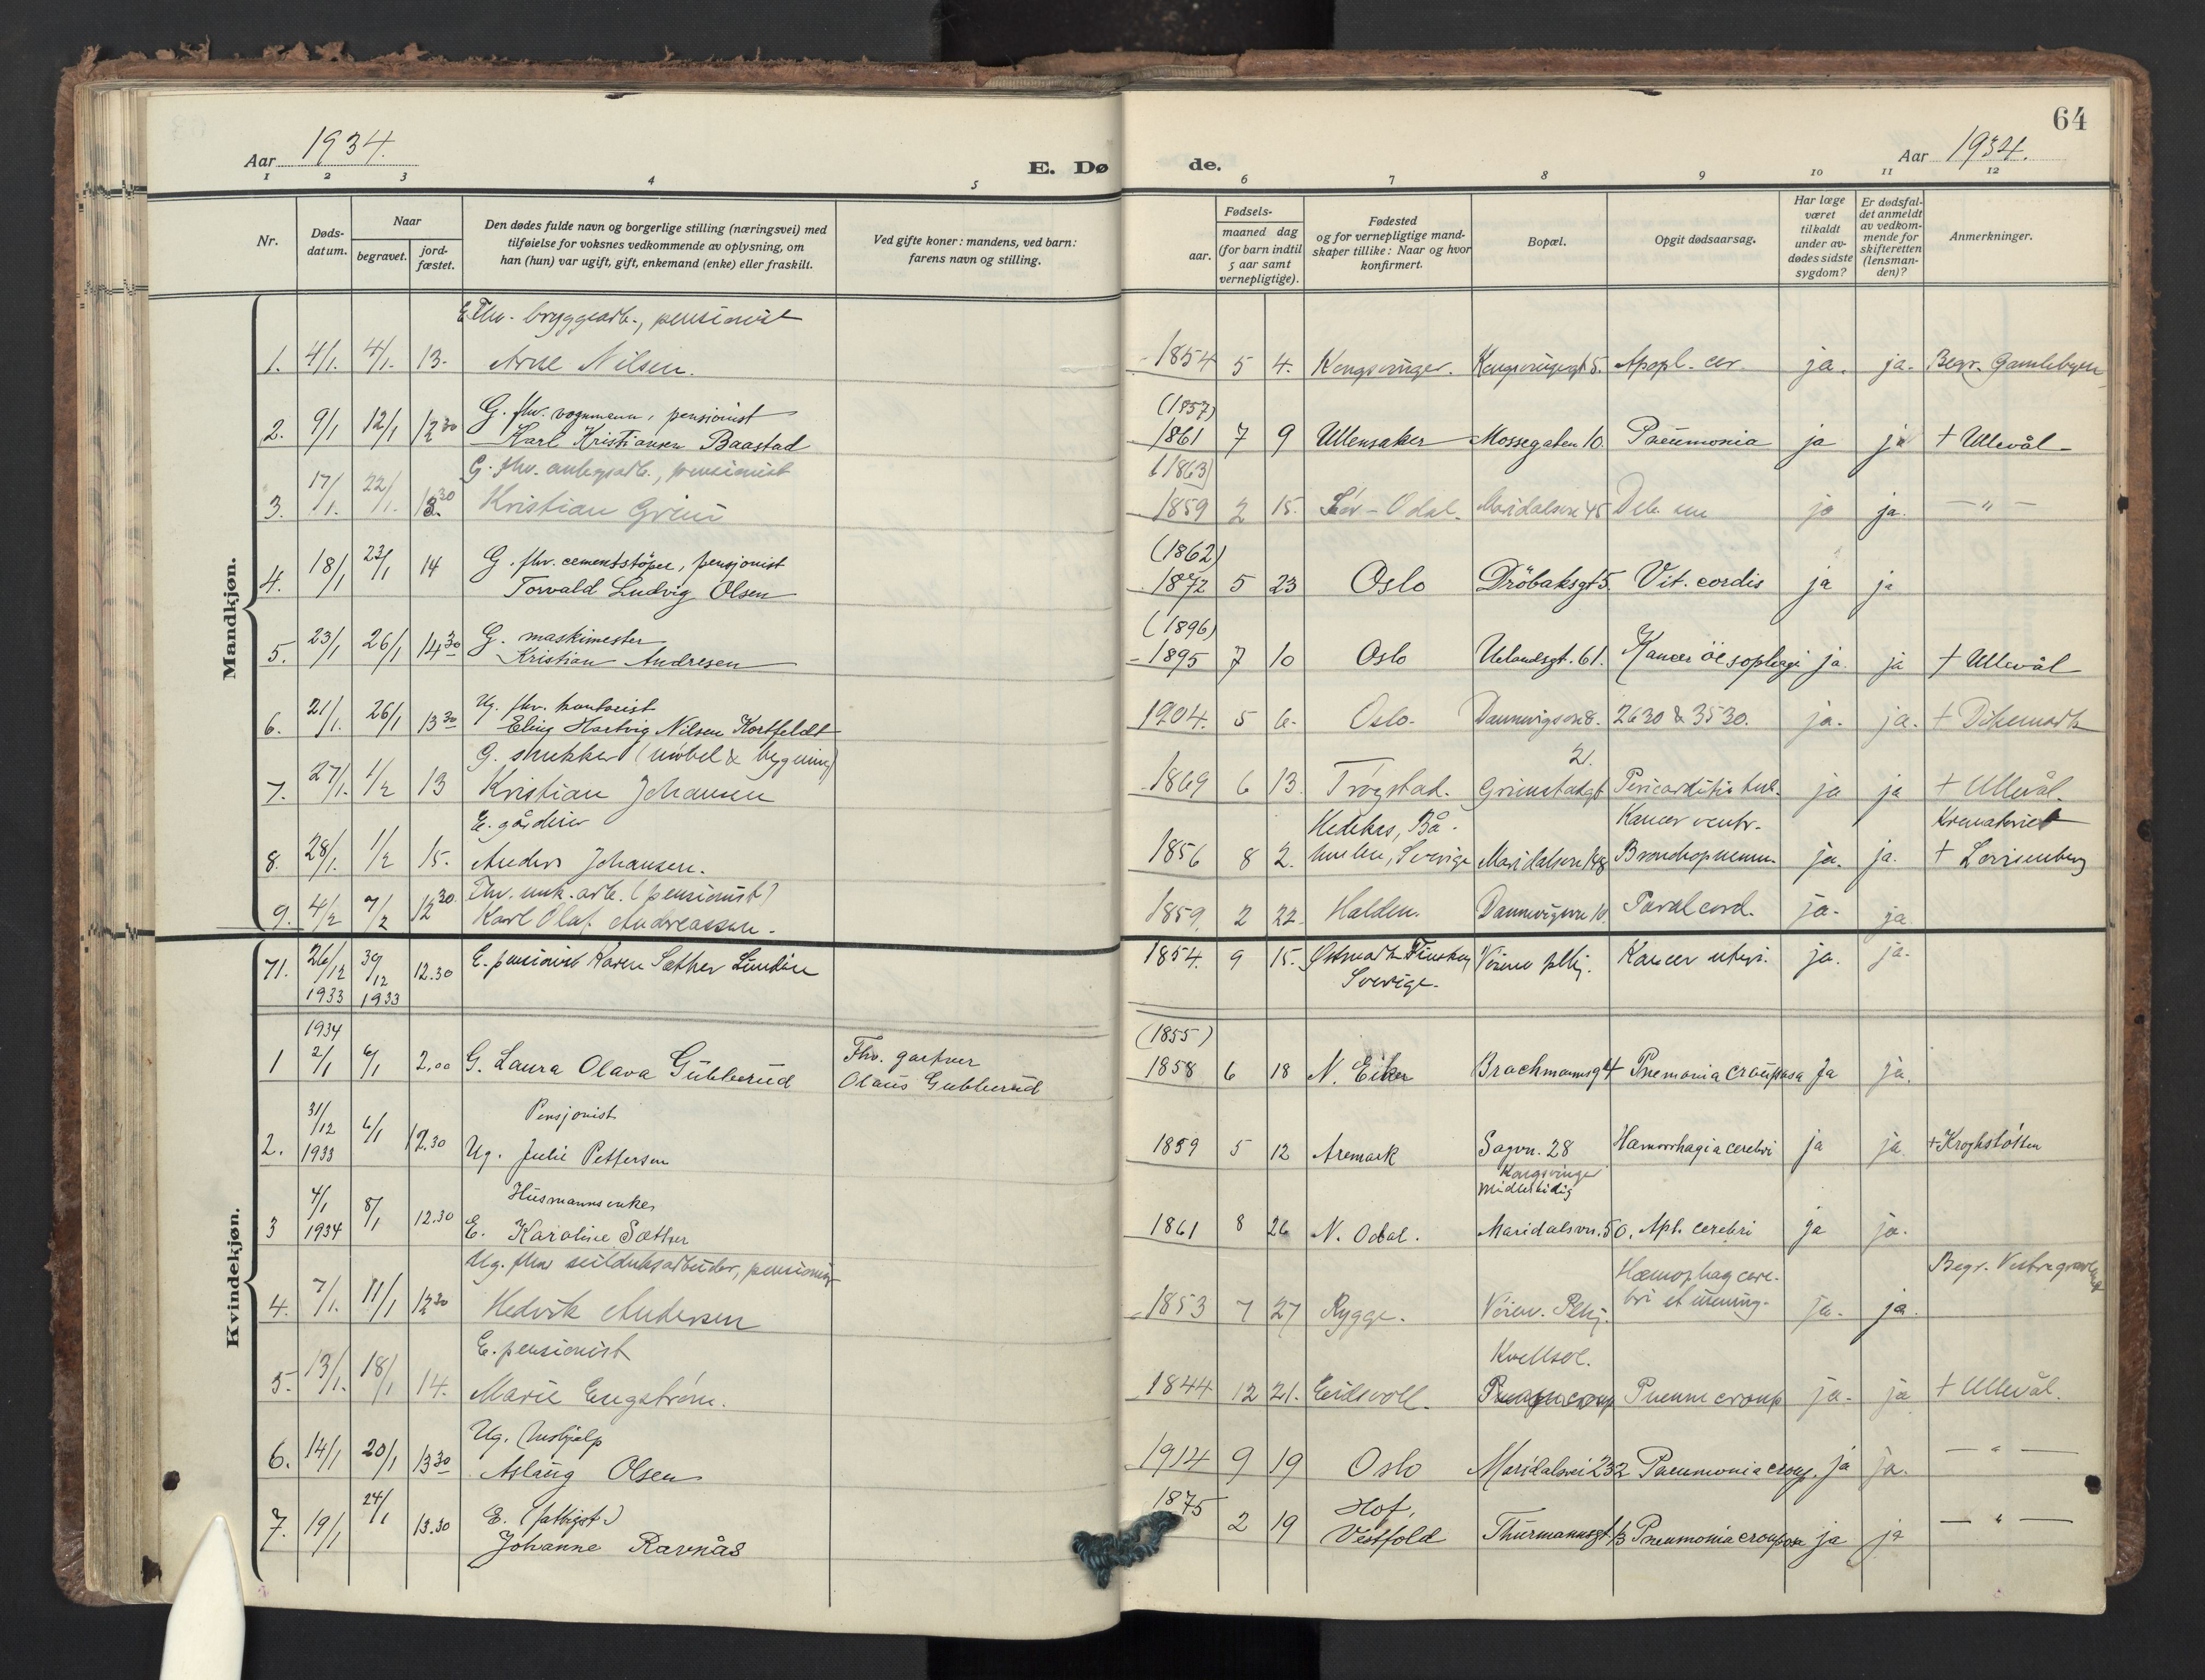 64
Aar 1934.
E. Dø
de.
Aar 1934.
1 2 3 4 5 6 7 8 9 10 11 12
Nr.
Døds-
datum.
Naar
begravet.
jord-
fæstet.
Den dødes fulde navn og borgerlige stilling (næringsvei) med
tilføielse for voksnes vedkommende av oplysning, om
han (hun) var ugift, gift, enkemand (enke) eller fraskilt.
Ved gifte koner: mandens, ved barn:
farens navn og stilling.
aar.
Fødsels-
maaned dag
(for barn indtil
5 aar samt
vernepligtige).
Fødested
og for vernepligtige mand-
skaper tillike: Naar og hvor
konfirmert.
Bopæl.
Opgit dødsaarsag.
Har læge
været
tilkaldt
under av-
dødes sidste
sygdom?
Er dødsfal-
det anmeldt
av vedkom-
mende for
skifteretten
(lensman-
den)?
Anmerkninger.
Mandkjøn.
E. Fhv. bryggearb., pensionist
1. 4/1. 4/1. 13. Arne Nilsen. 1854 5 4. Kongsvinger. Kongsvingergt 5. Apopl. cer. ja. ja. Begr. Gamlebyen
G. fhv. vognmann, pensjonist (1857)
2. 9/1 12/1 12 30 Karl Kristiansen Baastad 1861 7 9 Ullensaker Mossegaten 10. Pneumonia ja ja + Ullevål
G. fhv. anlegsarb., pensionist (1863)
3. 17/1. 22/1. 13 30 Kristian Grini 1859 2 15. Sør-Odal. Maridalsvn 45 Deb. sen ja ja. — " —
G. fhv. cementstöper, pensjonist (1862)
4. 18/1 23/1 14 Torvald Ludvig Olsen 1872 5 23 Oslo Dröbaksgt 5. Vit. cordis ja ja
G. maskimester (1896)
5. 23/1 26/1 14 30 Kristian Andresen 1895 7 10 Oslo Uelandsgt. 61. Kancer öesophagi ja. ja + Ullevål
Ug. fhv. kontorist
6. 21/1. 26/1 13 30 Eling Hartvig Nilsen Kortfeldt 1904. 5 6. Oslo. Dannevigsvn 8. 2630 & 3530. ja. ja. + Dikemark
G. snekker (møbel & bygning) 2.
7. 27/1. 1/2 13 Kristian Johansen 1869 6 13. Trøgstad. Grimstadgt Pericarditis tub. ja ja + Ullevål.
E. gårdeier Hedekas, Bå- Kancer ventr. Krematoriet
8. 28/1. 1/2 15. Anders Johansen. 1856 8 2. huslen, Sverige Maridalsvn 148 Bronchopneum. ja. ja. + Lovisenberg
Fhv. murarb. (pensionist)
9. 4/2 7/2 12 30. Karl Olaf Andreassen. 1859. 2 22. Halden. Dannevigsvn 10. Paral cord. ja. ja
Kvindekjøn.
71. 26/12 1933 30/12 1933 12.30 E. pensionist Karen Sather Lundin 1854. 9 15. Østmark Finskog Sverige. Voienv plhj. Kancer uteri. ja. ja.
1934 (1855)
1 2/1 6/1 2.00 G. Laura Olava Gubberud Fhv. gartner Olaus Gubberud 1858 6 18 N. Eiker Brochmannsg 4 Pnemonia crouposa Ja ja.
Pensjonist
2. 31/12 1933 6/1 12.30 Ug. Julie Pettersen 1859 5 12 Aremark Sagvn. 28 Hæmorrhagia cerebri ja ja + Kroghstötten
Husmannsenke Kongsvinger midlertidig
3 4/1 1934 8/1 12.30 E. Karoline Sæther 1861 8 26 N. Odal. Maridalsvn. 50. Apl. cerebri ja ja.
Ug. fhv. seilduksarbeider, pensionist Hæmophag cere- Begr. Vestre gravlund
4. 7/1. 11/1 12 30 Hedvik Andersen 1853 7 27 Rygge. Voienv. Plhj. bri et mening. ja. ja.
E. pensionist Kvellsol.
5. 13/1. 18/1 14. Marie Engström. 1844 12 21. Eidsvoll. Pneum croup ja. ja + Ullevål.
Ug. hushjelp
6. 14/1 20/1 13 30 Aslaug Olsen 1914 9 19 Oslo Maridalsvei 232 Pneumonia croup. ja ja. — " —
E. (fattigst.) Hof,
7. 19/1 24/1 13.30 Johanne Ravnås 1875 2 19 Vestfold Thurmannsgt. 13 Pneumonia crouposa ja ja — " —